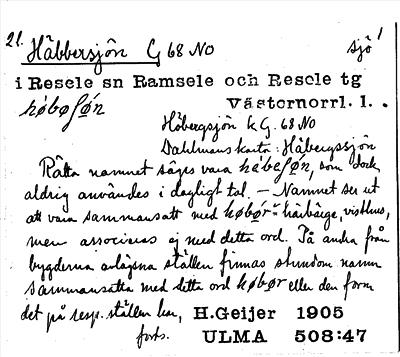 21. Häbbersjön G 68 NO sjö 1
i Resele sn Ramsele och Resele tg
høbøʃøn Västernorrl. l.
Höbergsjön k G. 68 NO
Dahlmans karta: Håbergssjön
Rätta namnet säges vara høbeʃøn, som dock
aldrig användes i dagligt tal. – Namnet ser ut
att vara sammansatt med høbør = härbärge, visthus,
men associeras ej med detta ord. På andra från
bygderna avlägsna ställen finnas stundom namn
sammansatta med detta ord høbør eller den form
det på resp. ställen har, H. Geijer 1905
forts. ULMA 508:47